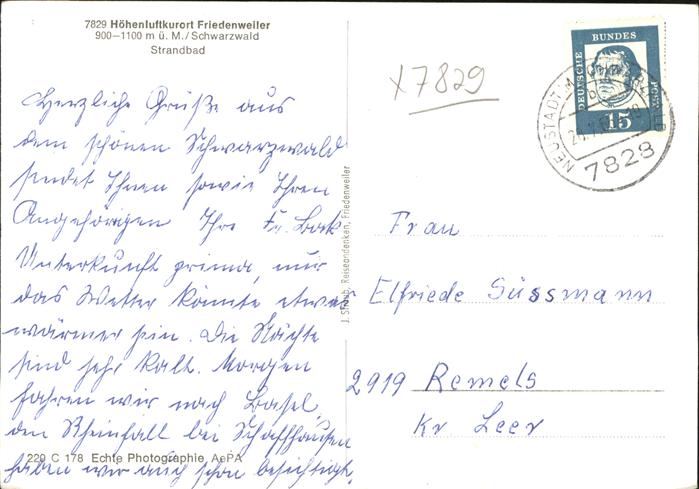 7829 Höhenluftkurort Friedenweiler
900–1100 m ü. M./Schwarzwald
Strandbad
Herzliche Grüße aus
dem schönen Schwarzwald
sendet Ihnen sowie Ihren
Angehörigen Ihre Fr. Back
Unterkunft prima, nur
das Wetter könnte etwas
wärmer sein. Die Nächte
sind sehr kalt. Morgen
fahren wir nach Basel,
den Rheinfall bei Schaffhausen
haben wir auch schon besichtigt.
220 C 178 Echte Photographie AePA
J. Straub, Reiseandenken, Friedenweiler
x7829
DEUTSCHE BUNDESPOST
15
NEUSTADT
7828
Frau
Elfriede Süssmann
2919 Remels
Kr Leer